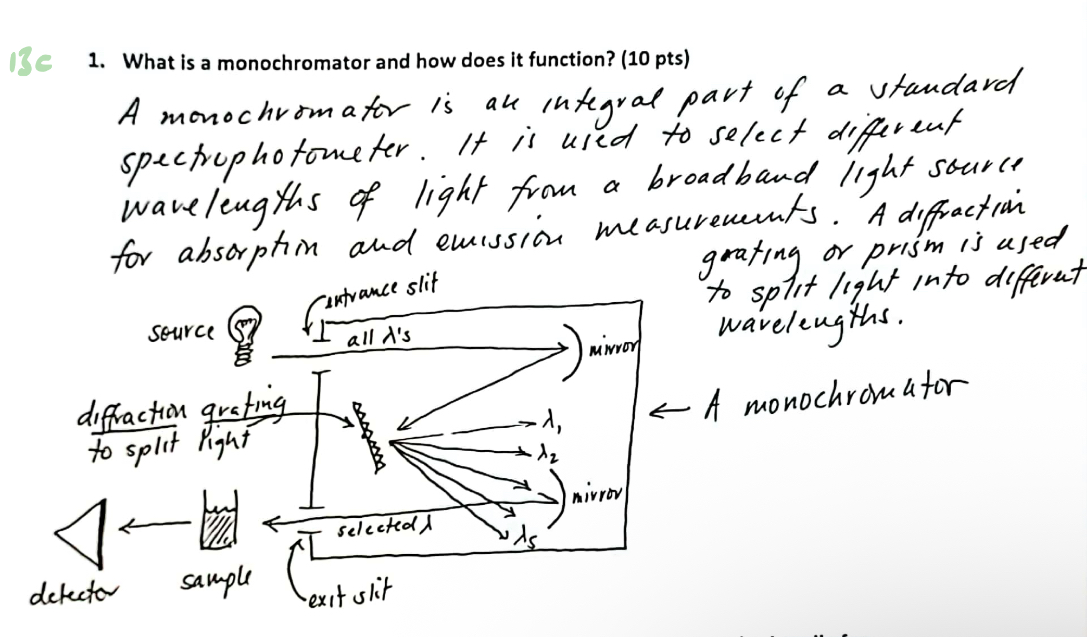 13c
1. What is a monochromator and how does it function? (10 pts)
A monochromator is an integral part of a standard
spectrophotometer. It is used to select different
wavelengths of light from a broadband light source
for absorption and emission measurements. A diffraction
grating or prism is used
to split light into different
wavelengths.
entrance slit
source
all λ's
mirror
diffraction grating
to split light
← A monochromator
λ₁
λ₂
mirror
selected λ
λ₅
detector
sample
exit slit